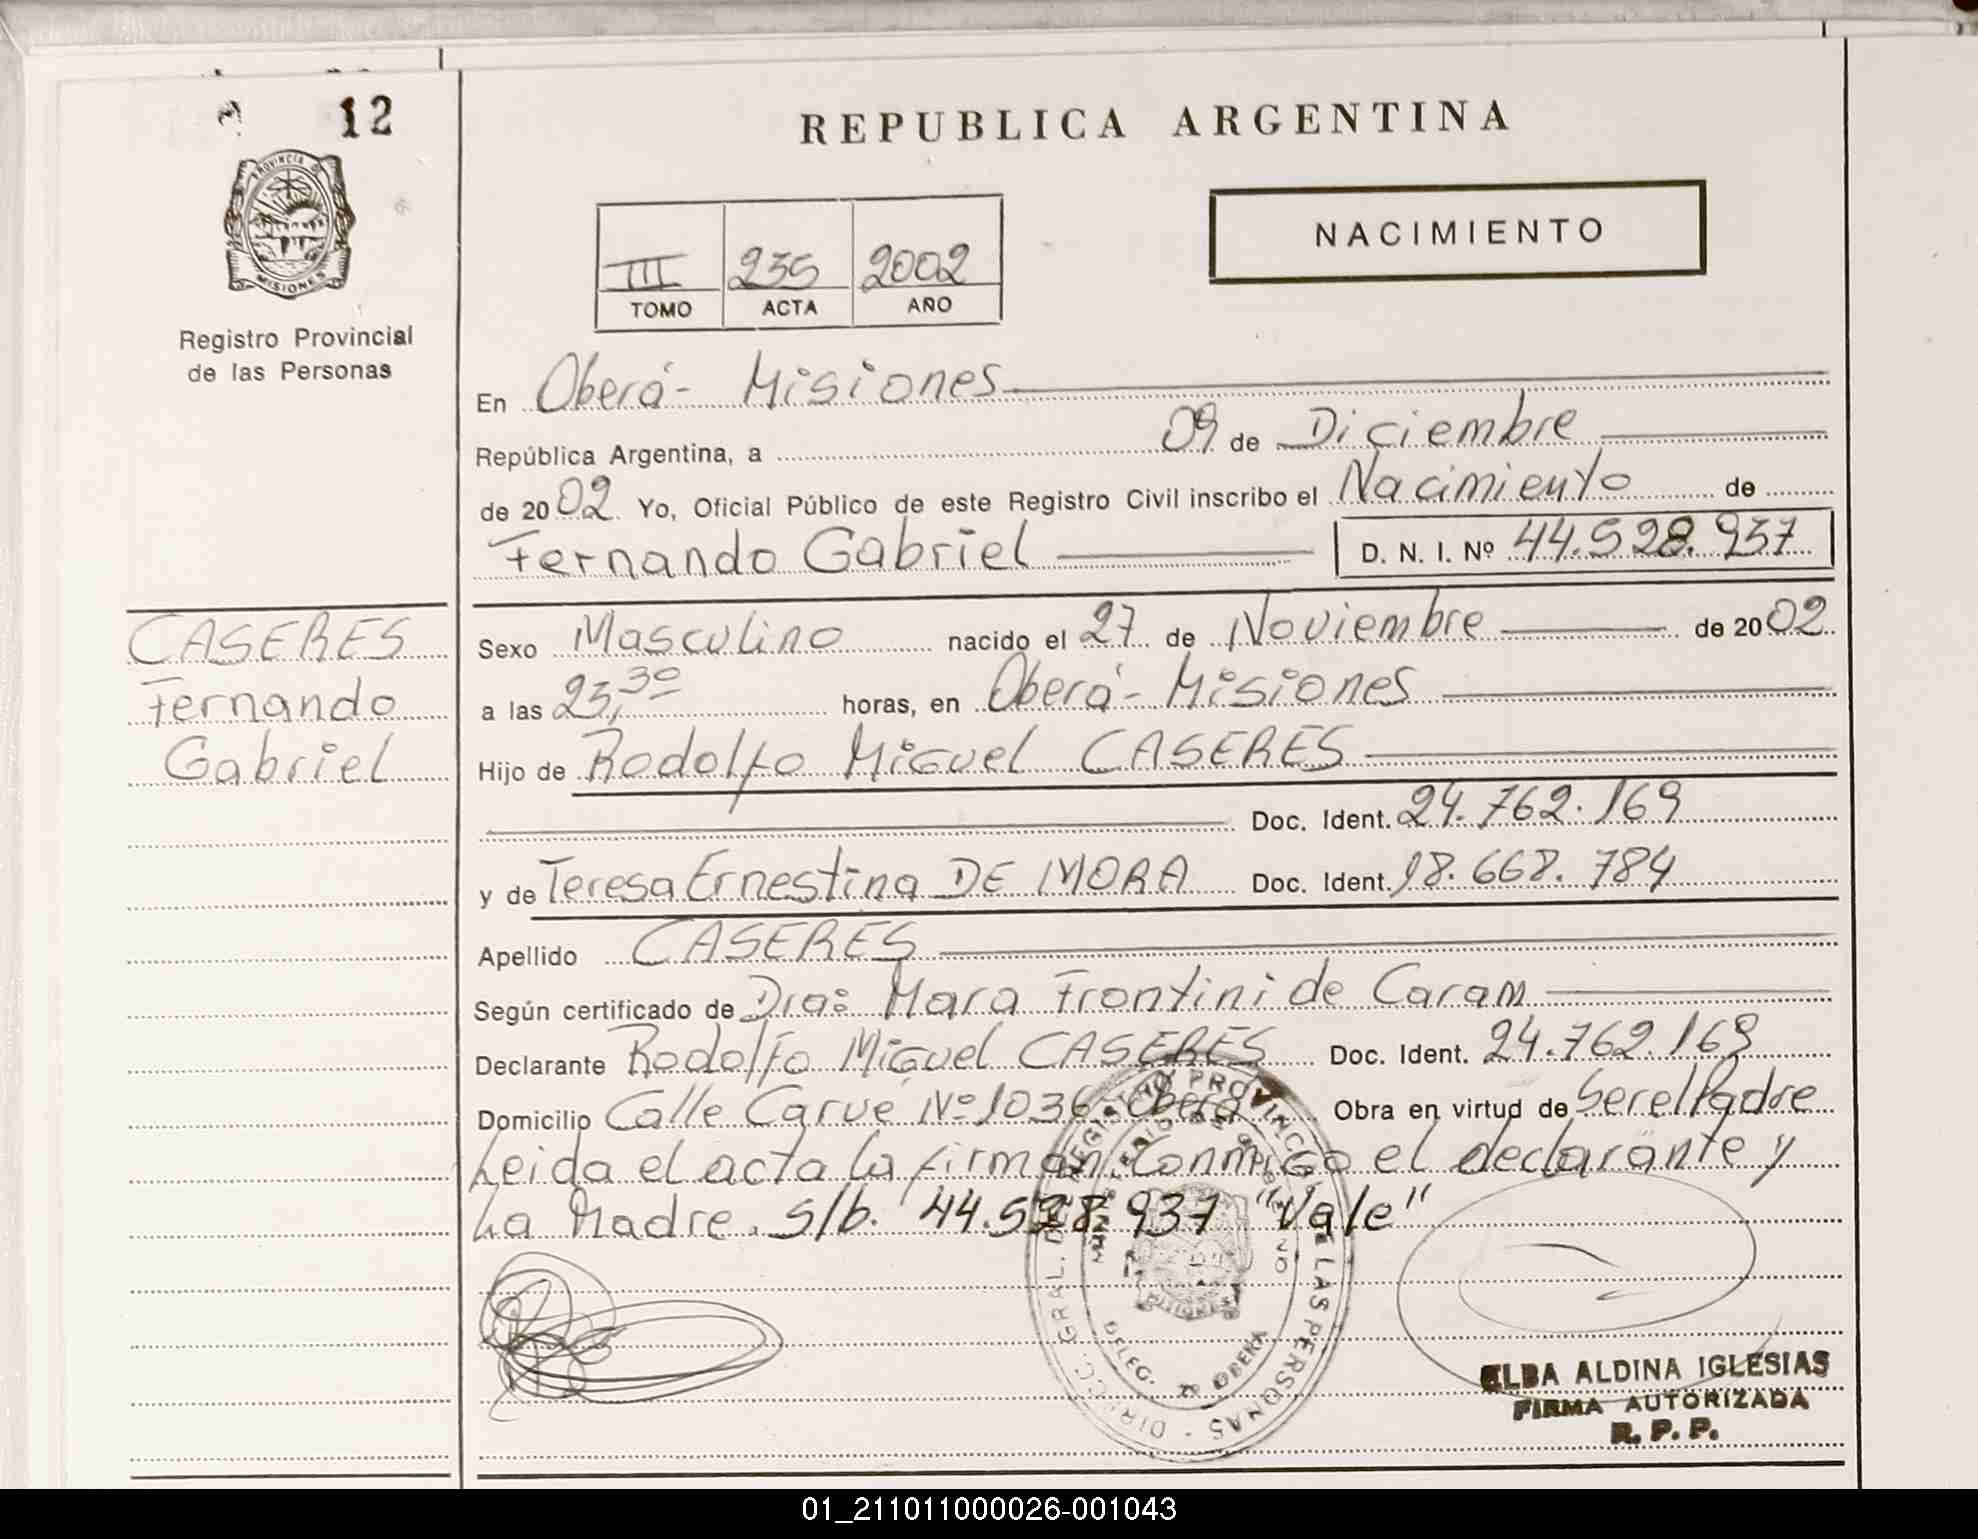 12
REPUBLICA ARGENTINA
PROVINCIA D
MISIONES
Registro Provincial
de las Personas
NACIMIENTO
III 235 2002
TOMO ACTA AÑO
En Oberá - Misiones
República Argentina, a 09 de Diciembre
de 2002 Yo, Oficial Público de este Registro Civil inscribo el Nacimiento de
Fernando Gabriel D. N. I. Nº 44.528.937
CASERES
Fernando
Gabriel
Sexo Masculino nacido el 27 de Noviembre de 2002
a las 23,30 horas, en Oberá - Misiones
Hijo de Rodolfo Miguel CASERES
Doc. Ident. 24.762.169
y de Teresa Ernestina DE MORA Doc. Ident. 18.668.784
Apellido CASERES
Según certificado de Dra: Mara Frontini de Caram
Declarante Rodolfo Miguel CASERES Doc. Ident. 24.762.169
Domicilio Calle Carue Nº 1036 - Oberá Obra en virtud de Ser el Padre
Leida el acta la firman Conmigo el declarante y
La Madre. S/b. 44.528.937 "Vale"
DIRECC. GRAL. DEL REGISTRO PROVINCIAL DE LAS PERSONAS
DELEG. OBERA
MISIONES
ELBA ALDINA IGLESIAS
FIRMA AUTORIZADA
R. P. P.
01_211011000026-001043